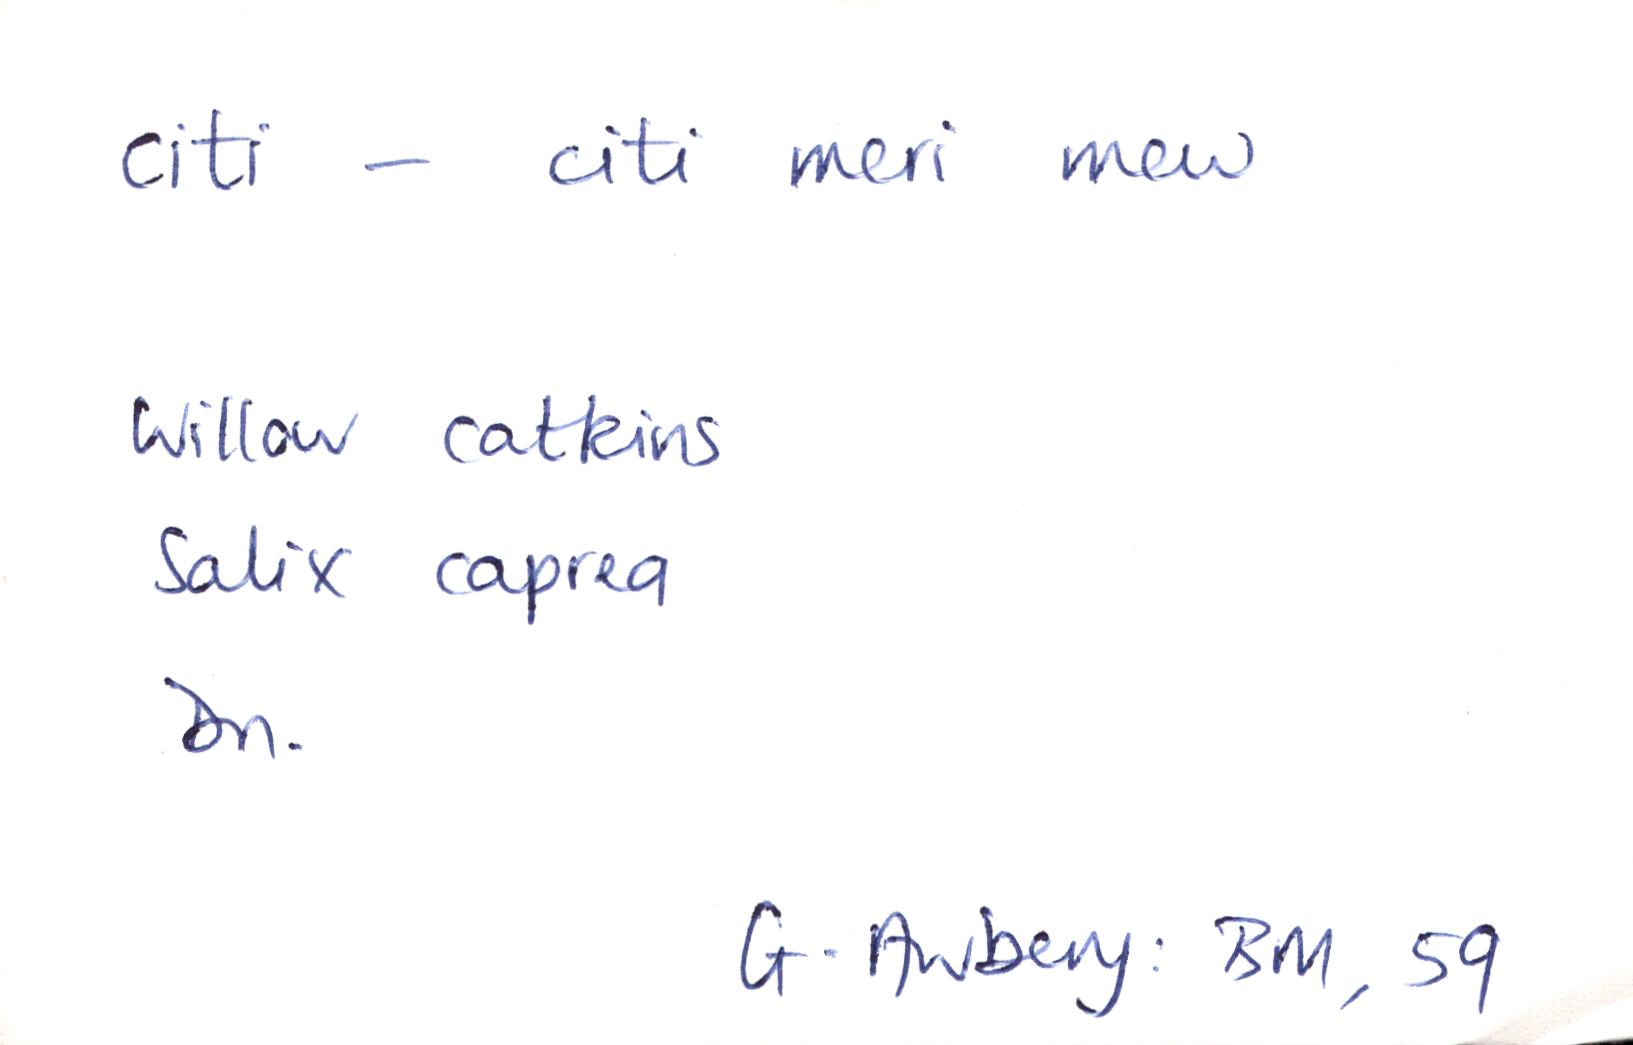 citi – citi meri mew
Willow catkins
Salix caprea
Dn.
G. Awbery: BM, 59